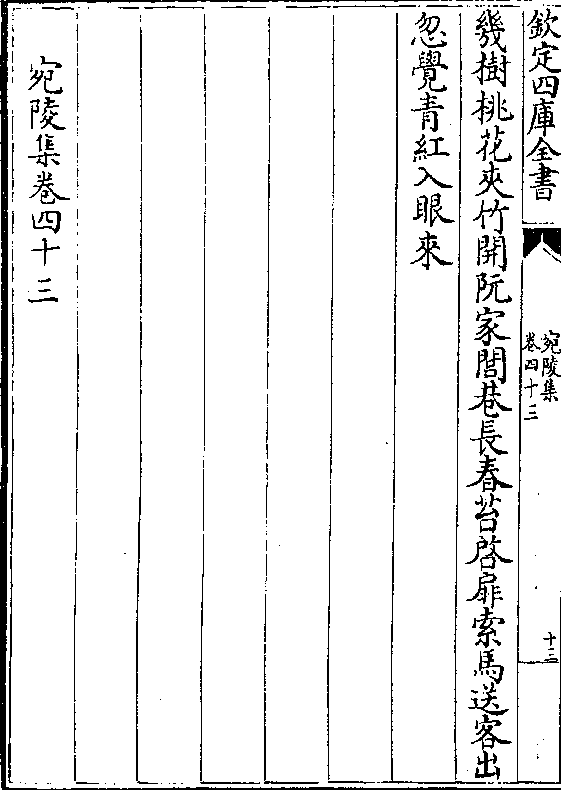 欽定四庫全書
宛陵集
卷四十三
十三
幾樹桃花夾竹開阮家閭巷長春苔啓扉索馬送客出
忽覺青紅入眼來
宛陵集卷四十三